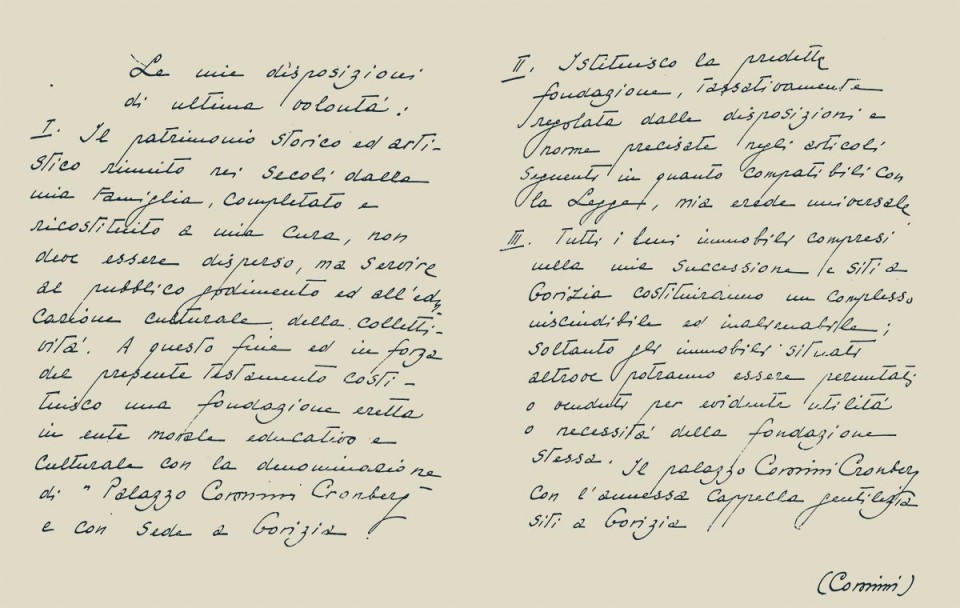 Le mie disposizioni
di ultima volontà:
I. Il patrimonio storico ed arti-
stico riunito nei secoli dalla
mia Famiglia, completato e
ricostituito a mia cura, non
deve essere disperso, ma servire
al pubblico godimento ed all'edu-
cazione culturale della colletti-
vità. A questo fine ed in forza
del presente testamento costi-
tuisco una fondazione eretta
in ente morale educativo e
culturale con la denominazione
di "Palazzo Coronini Cronberg"
e con sede a Gorizia.
II. Istituisco la predetta
fondazione, tassativamente
regolata dalle disposizioni e
norme precisate negli articoli
seguenti in quanto compatibili con
la Legge, mia erede universale
III. Tutti i beni immobili compresi
nella mia successione e siti a
Gorizia costituiranno un complesso
inscindibile ed inalienabile;
soltanto gli immobili situati
altrove potranno essere permutati
o venduti per evidente utilità
o necessità della fondazione
stessa. Il palazzo Coronini Cronberg
con l'annessa cappella gentilizia
siti a Gorizia
(Coronini)